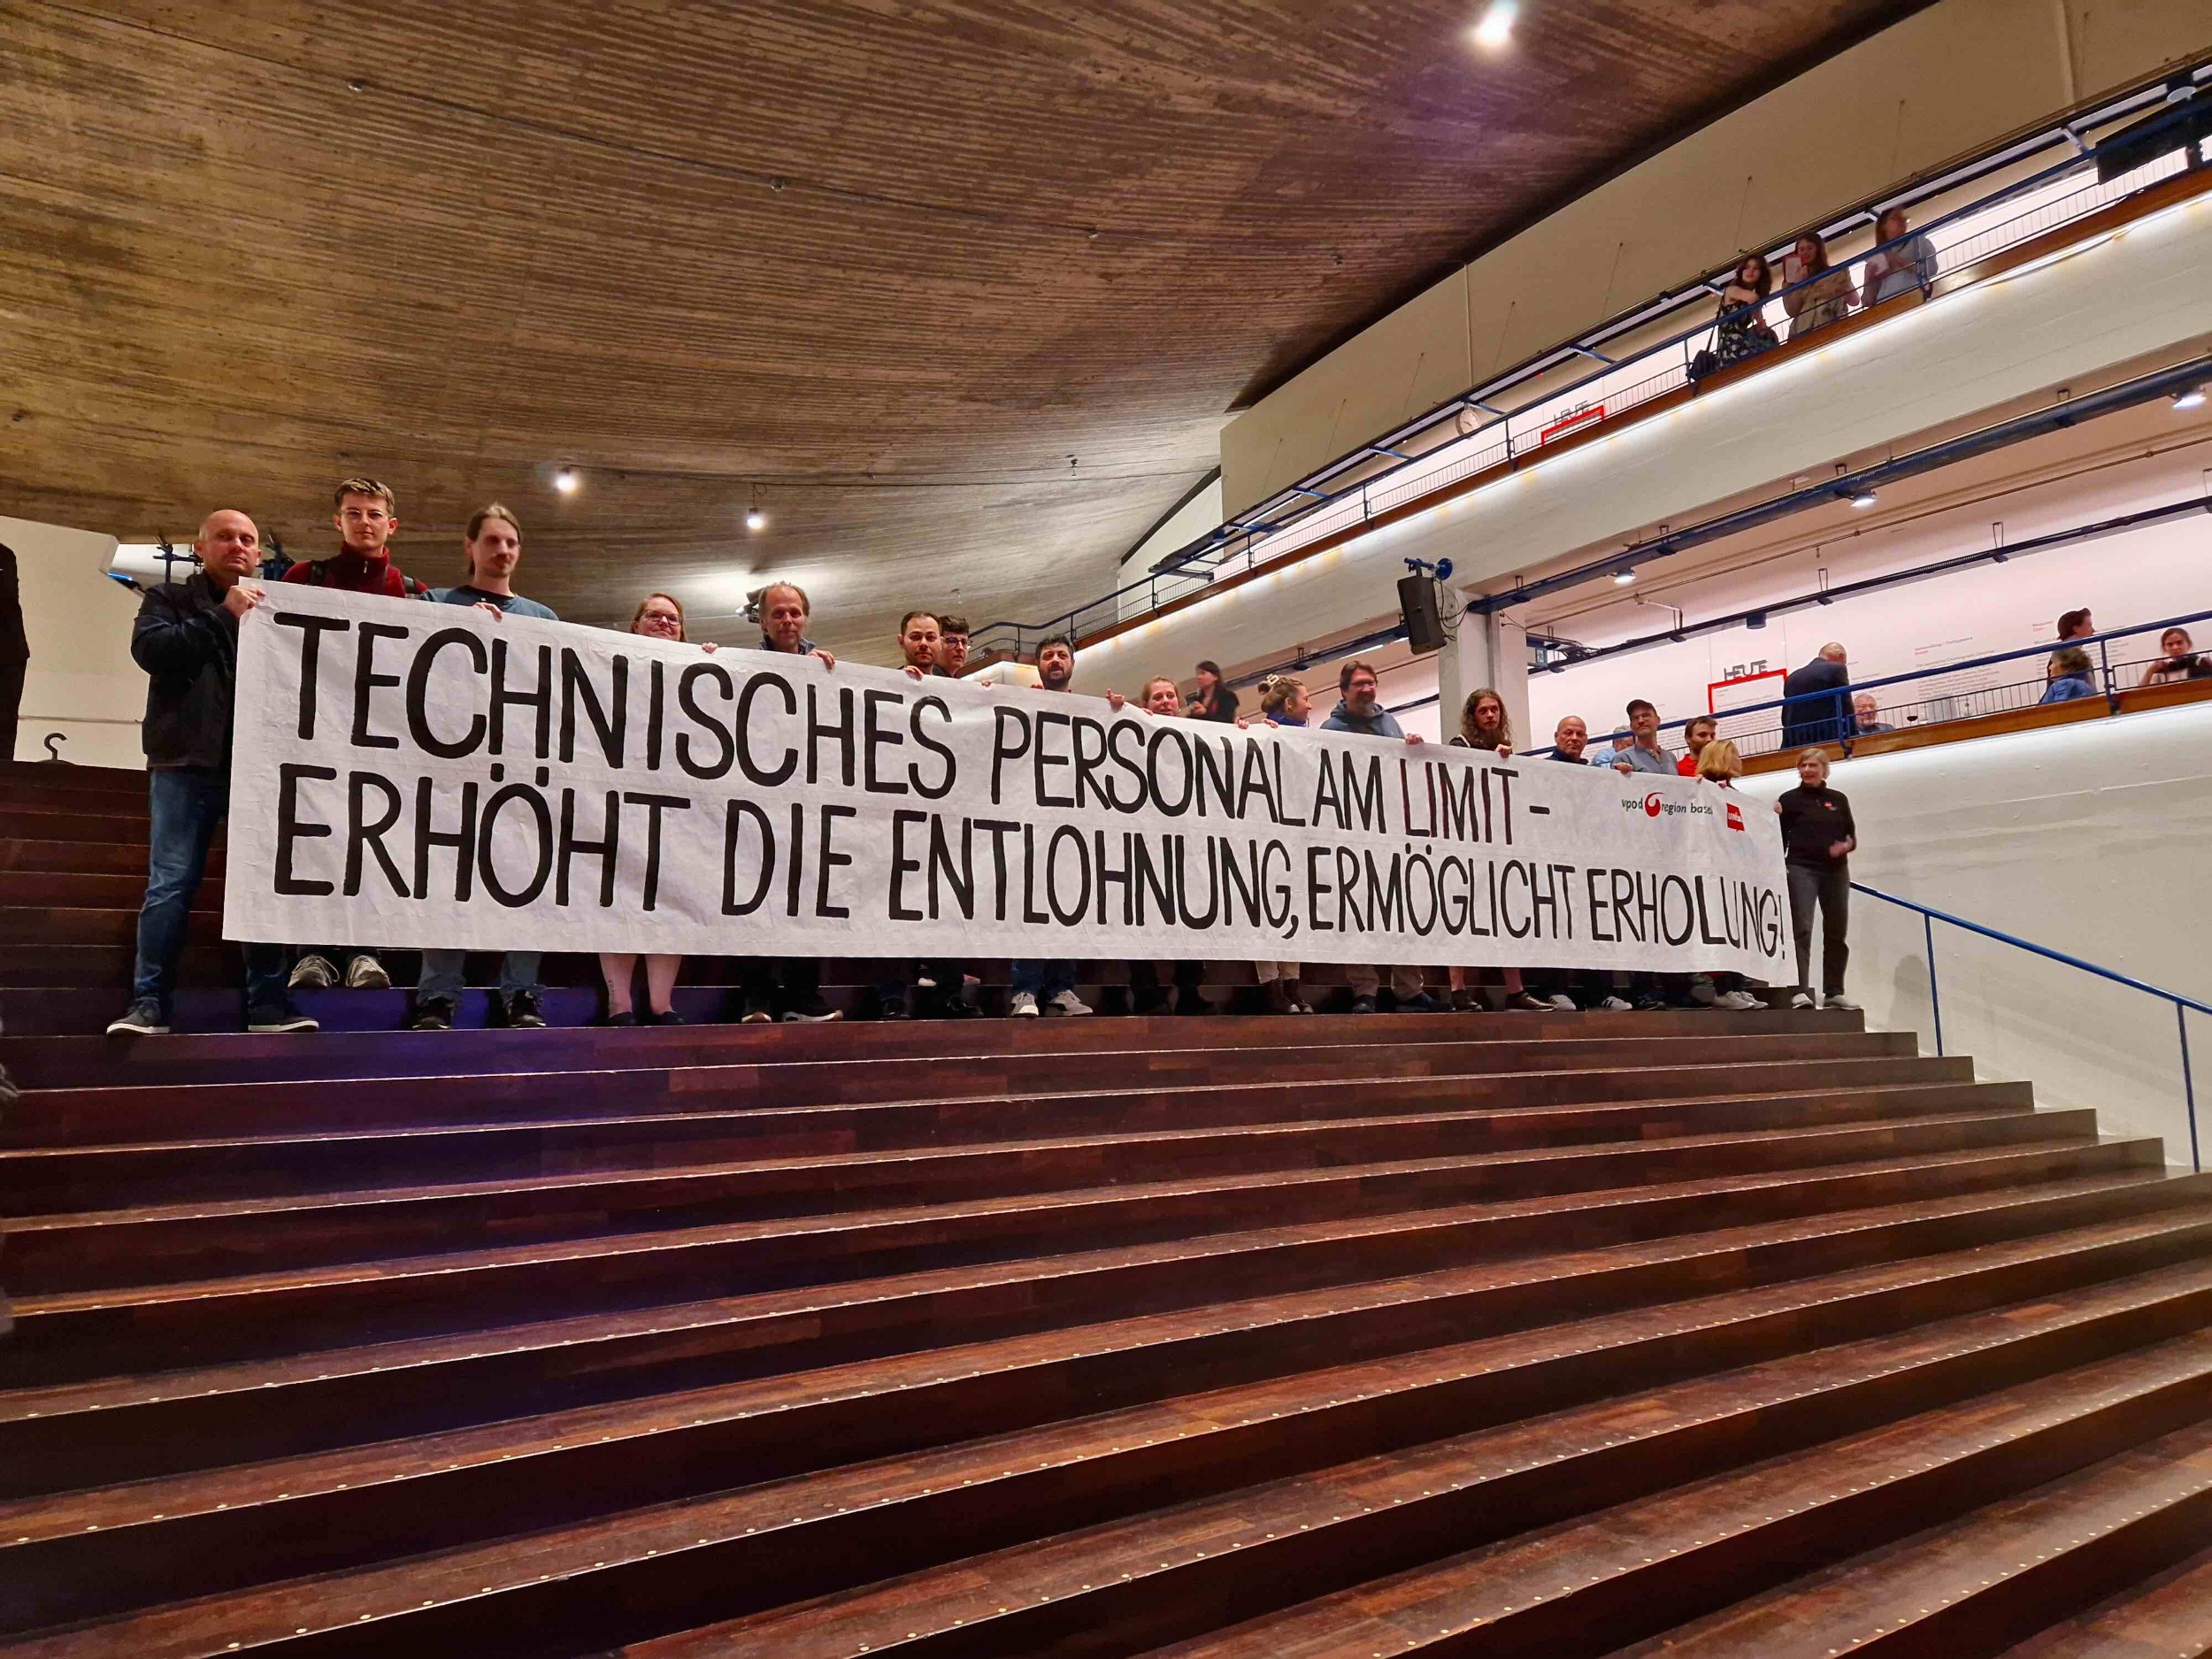 TECHNISCHES PERSONAL AM LIMIT –
ERHÖHT DIE ENTLOHNUNG, ERMÖGLICHT ERHOLUNG!
vpod region basel
HEUTE
HEUTE